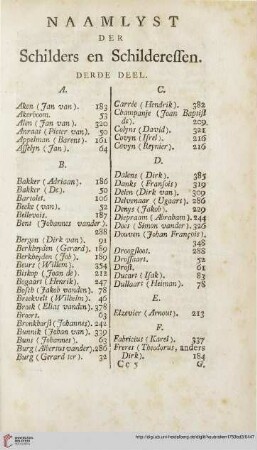 NAAMLYST
DER
Schilders en Schilderessen.
DERDE DEEL.
A.
Aken (Jan van). 183
Akerboom. 53
Alen (Jan van). 320
Anraat (Pieter van). 50
Appelman (Barent). 161
Asselyn (Jan). 64
B.
Bakker (Adriaan). 186
Bakker (De). 50
Bartolet. 106
Bieke (van). 52
Bellevois. 187
Bent (Johannes vander). 288
Bergen (Dirk van). 91
Berkheyden (Gerard). 189
Berkheyden (Job). 189
Beurs (Willem). 354
Biskop (Joan de). 212
Bogaart (Henrik). 247
Bosch (Jakob vanden). 78
Breekvelt (Wilhelm). 46
Broek (Elias vanden). 378
Broers. 63
Bronkhorst (Johannes). 242
Brunnik (Jan van). 330
Buns (Johannes). 63
Burg (Albertus vander). 286
Burg (Gerard ter). 32
C.
Carrée (Hendrik). 382
Champanje (Joan Baptist de). 209
Colyns (David). 321
Covyn (Isrel). 216
Covyn (Reynier). 216
D.
Dalens (Dirk). 385
Danks (Fransois) 319
Delen (Dirk van). 309
Delvenaar (Ugaart). 286
Denys (Jakob). 229
Diepraam (Abraham). 244
Does (Simon vander). 326
Doeuven (Johan François). 345
Droogsloot. 288
Drossaart. 52
Drost. 61
Ducart (Isak). 83
Dullaart (Heiman). 78
E.
Elzevier (Arnout). 213
F.
Fabritius (Karel). 337
Freres (Theodorus, anders Dirk). 184
Cc 5 G.